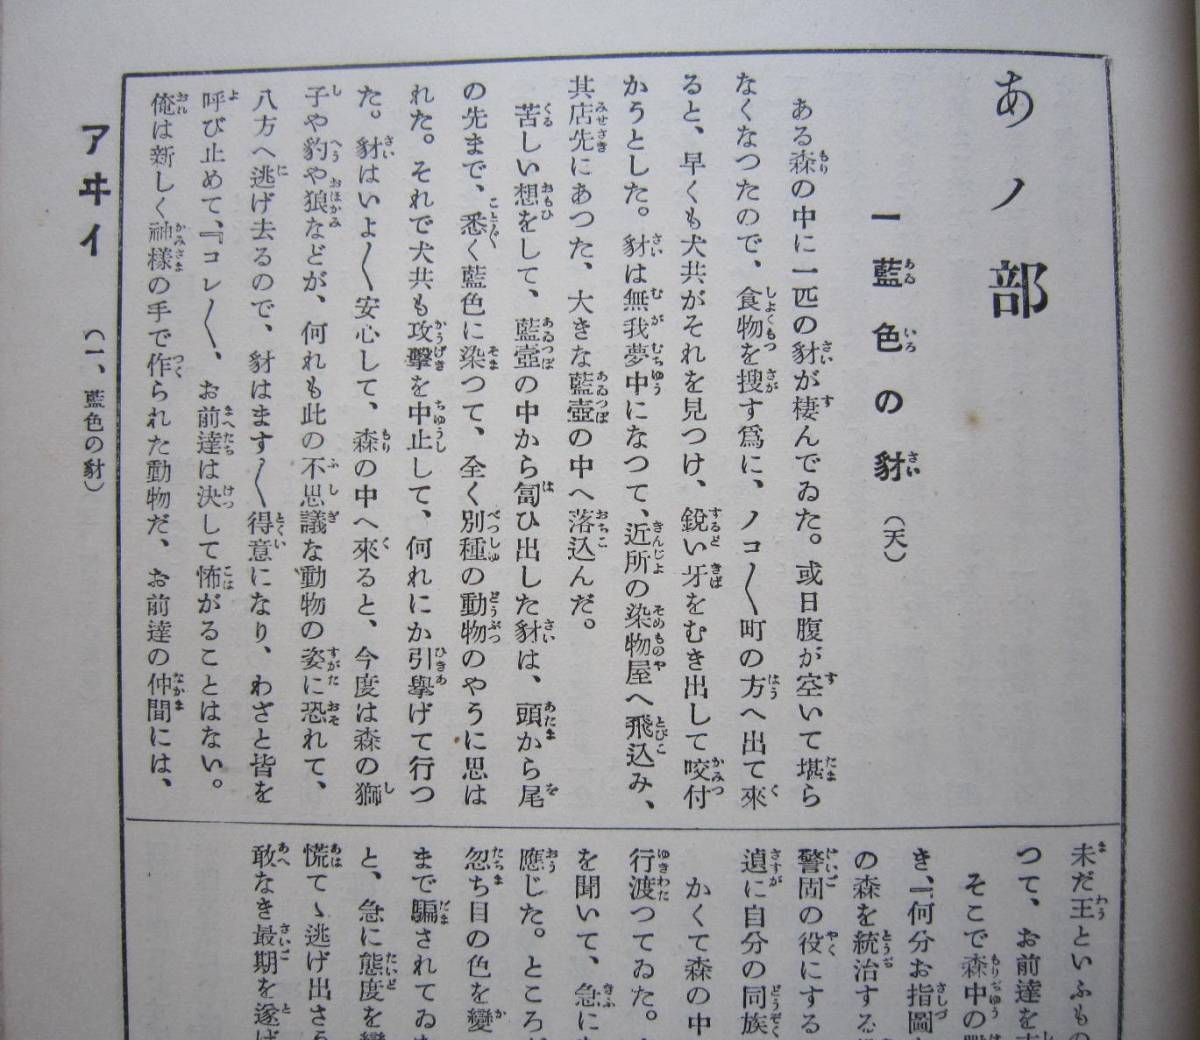 あノ部
一 藍色の豺 （天）
ある森の中に一匹の豺が棲んでゐた。或日腹が空いて堪ら
なくなつたので、食物を搜す爲に、ノコ〳〵町の方へ出て來
ると、早くも犬共がそれを見つけ、鋭い牙をむき出して咬付
かうとした。豺は無我夢中になつて、近所の染物屋へ飛込み、
其店先にあつた、大きな藍壺の中へ落込んだ。
苦しい想をして、藍壺の中から匐ひ出した豺は、頭から尾
の先まで、悉く藍色に染つて、全く別種の動物のやうに思は
れた。それで犬共も攻擊を中止して、何れにか引擧げて行つ
た。豺はいよ〳〵安心して、森の中へ來ると、今度は森の獅
子や豹や狼などが、何れも此の不思議な動物の姿に恐れて、
八方へ逃げ去るので、豺はます〳〵得意になり、わざと皆を
呼び止めて、『コレ〳〵、お前達は決して怖がることはない。
俺は新しく神樣の手で作られた動物だ、お前達の仲間には、
未だ王といふもの
つて、お前達を
そこで森中の
き、『何分お指圖
の森を統治する
警固の役にする
遉に自分の同族
かくて森の中
行渡つてゐた。
を聞いて、急に
應じた。ところ
忽ち目の色を變
まで騙されてゐ
と、急に態度を變
慌てゝ逃げ出さう
敢なき最期を遂げ
アヰイ （一、藍色の豺）